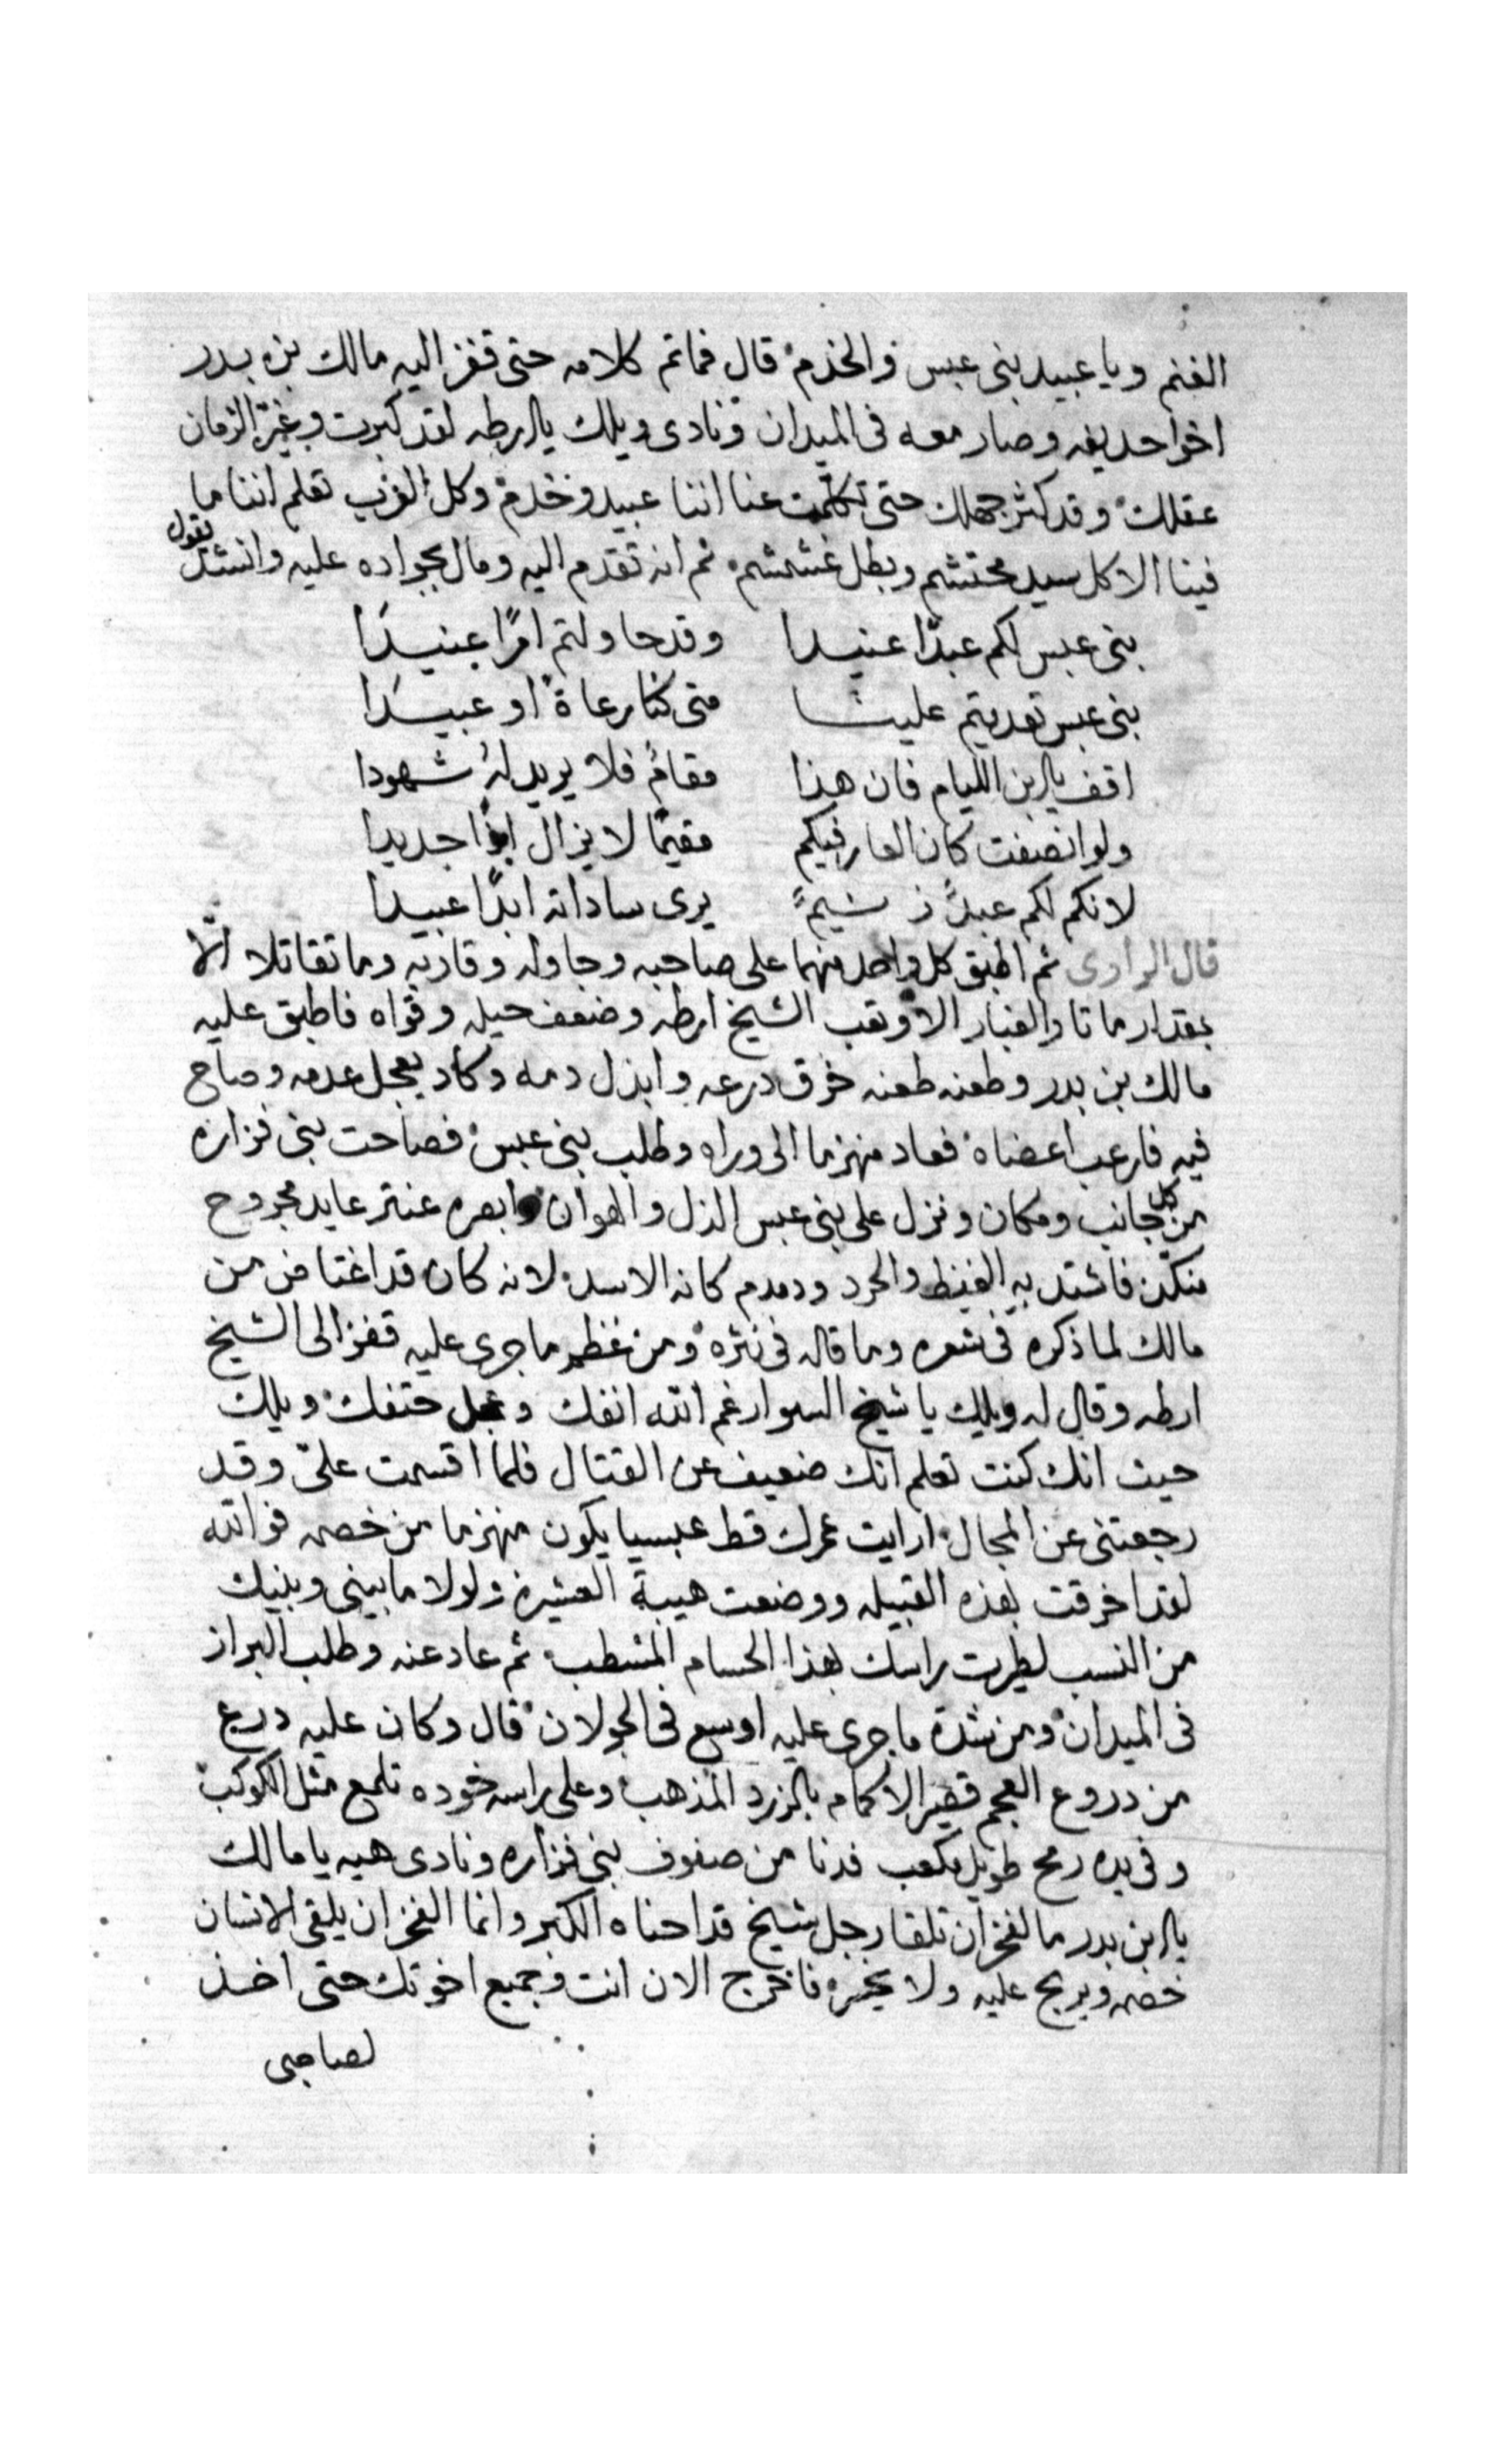 الغنم ويا عبيد بنى عبس والخدم قال فماتم كلامه حتى قفز اليه مالك بن بدر
اخو احديفه وصار معه فى الميدان ونادى ويلك يا ارطه لقد كبرت وغير الزمان
عقلك وقد كثر جهلك حتى تكلمت عنا اننا عبيد وخدم وكل العرب تعلم اننا ما
فينا الا كل سيد محتشم وبطل غشمشم ثم انه تقدم اليه ومال بجواده عليه وانشد يقول
بنى عبس لكم عبدًا عنيدا وقد حاولتم امرًا عنيدًا
بنى عبس تعديتم علينا متى كنا رعاة او عبيدًا
اقف يا ابن الليام فان هذا مقامُ فلا يريد لهُ شهودا
ولو انصفت كان العار فيكم مقيمًا لا يزال جديدا
لانكم لكم عبدٌ يرى ساداته ابدًا عبيدا
قال الراوى ثم اطبق كل واحد منهما على صاحبه وجاوله وقاربه وما تقاتلا الّا
بمقدار ما تار الغبار الا وتعب الشيخ ارطه وضعف حيله وقواه فاطبق عليه
مالك بن بدر وطعنه طعنه خرق درعه وانزل دمه وكاد يعجل عدمه وصاح
فيه فارعب اعضاه فعاد منهزما الى وراه وطلب بنى عبس فصاحت بنى فزاره
من كل جانب ومكان ونزل على بنى عبس الذل والهوان وابصره عنتر عايد مجروح
فاشتد به الغيظ والحرد ودمدم كانه الاسد لانه كان قد اغتاض من
مالك لما ذكره فى شعره وما قاله فى نثره ومن عظم ما جرى عليه قفز الى الشيخ
ارطه وقال له ويلك يا شيخ السوا رغم الله انفك وعجل حتفك ويلك
حيث انك كنت تعلم انك ضعيف عن القتال فلما اقسمت علىّ وقد
رجعتنى عن المجال ارايت عمرك قط عبسيا يكون منهزما من خصمه فوالله
لقد اخرقت بهذه القبيله ووضعت هيبة العشيره ولولا ما بينى وبينك
من النسب لطيرت راسك بهذا الحسام المشطب ثم عاد عنه وطلب البراز
فى الميدان ومن شدة ما جرى عليه اوسع فى الجولان قال وكان عليه درع
من دروع العجم قصير الاكمام بالزرد المذهب وعلى راسه خوده تلمع مثل الكوكب
وفى يده رمح طويل مكعب فدنا من صفوف بنى فزاره ونادى هيه يا مالك
يا ابن بدر ما الفخر ان تلقا رجل شيخ قد احناه الكبر وانما الفخر ان يلقى الانسان
خصمه ويربح عليه ولا يخسر فاخرج الان انت وجميع اخوتك حتى اخذ
لصاحبى